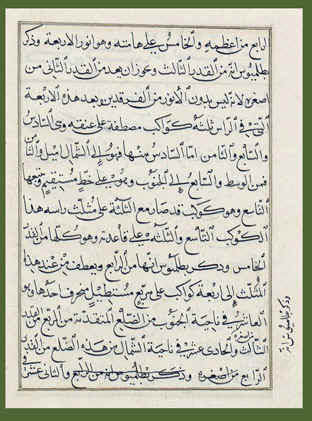 الرابع من اعظمه والخامس على هامته وهو انور الاربعة وذكر
بطلميوس انه من القدر الثالث وحوزان يعد من القدر الثانى من
اصغره لانه ليس بدون الانور من الفرقدين وبعد هذه الاربعة
التى فى الراس ثلثة كواكب مصطفة على عنقه وهى السادس
والسابع والثامن اما السادس منها فهو الى الشمال اميل والثا
فمن الوسط والسابع الى الجنوب وهو على خط مستقيم وتبعها
التاسع وهو كوكب قد صار مع الثلثة على مثلث راسه هذا
الكوكب التاسع والثلثه على قاعدته وهو كلها من القدر
الخامس وذكر بطلميوس انها من الرابع وينعطف من عند هذا
المثلث الى اربعة كواكب على مربع مستطيل منحرف احدها وهو
العاشر فى ناحية الجنوب من الضلع المتقدمة من الرابع من القدر
الثالث والحادى عشر فى ناحية الشمال من هذه الضلع من القدر
الرابع من اصغره وذكر بطلميوس انه من الرابع والثانى عشر